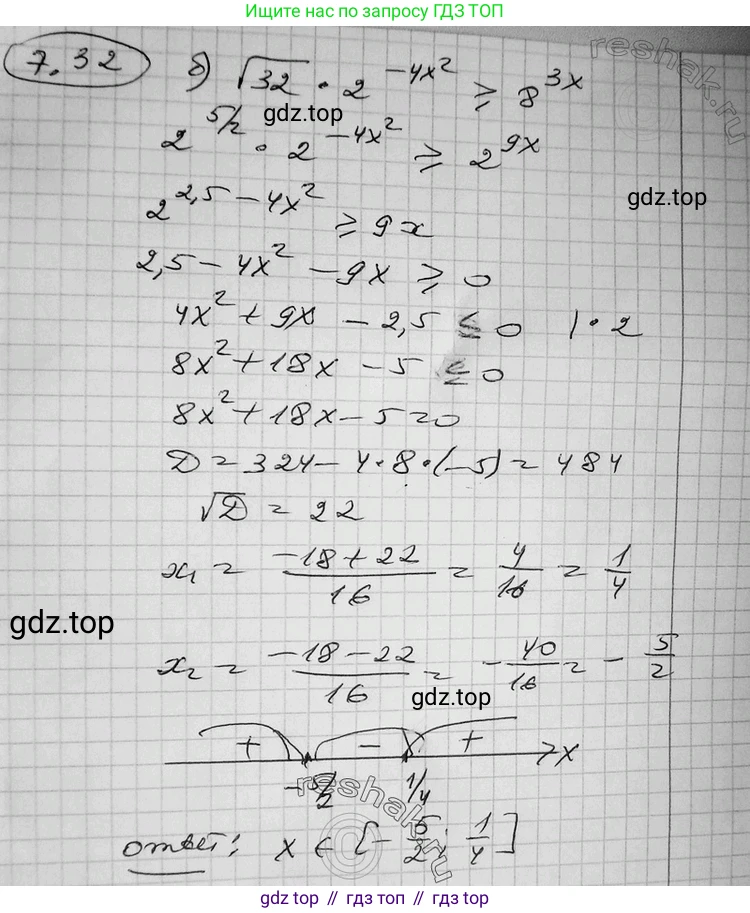 Ищите нас по запросу ГДЗ ТОП
7.32 б) √32 · 2^(-4x²) ≥ 8^(3x)
gdz.top
2^(5/2) · 2^(-4x²) ≥ 2^(9x)
gdz.top
2^(2,5 - 4x²) ≥ 9x
2,5 - 4x² - 9x ≥ 0
4x² + 9x - 2,5 ≤ 0 | · 2
8x² + 18x - 5 ≤ 0
8x² + 18x - 5 = 0
D = 324 - 4·8·(-5) = 484
√D = 22
x₁ = (-18 + 22)/16 = 4/16 = 1/4
gdz.top
x₂ = (-18 - 22)/16 = - 40/16 = - 5/2
gdz.top
+ - + x
-5/2 1/4
reshak.ru
reshak.ru
ответ: x ∈ [- 5/2; 1/4]
gdz.top // гдз топ // gdz.top // гдз топ